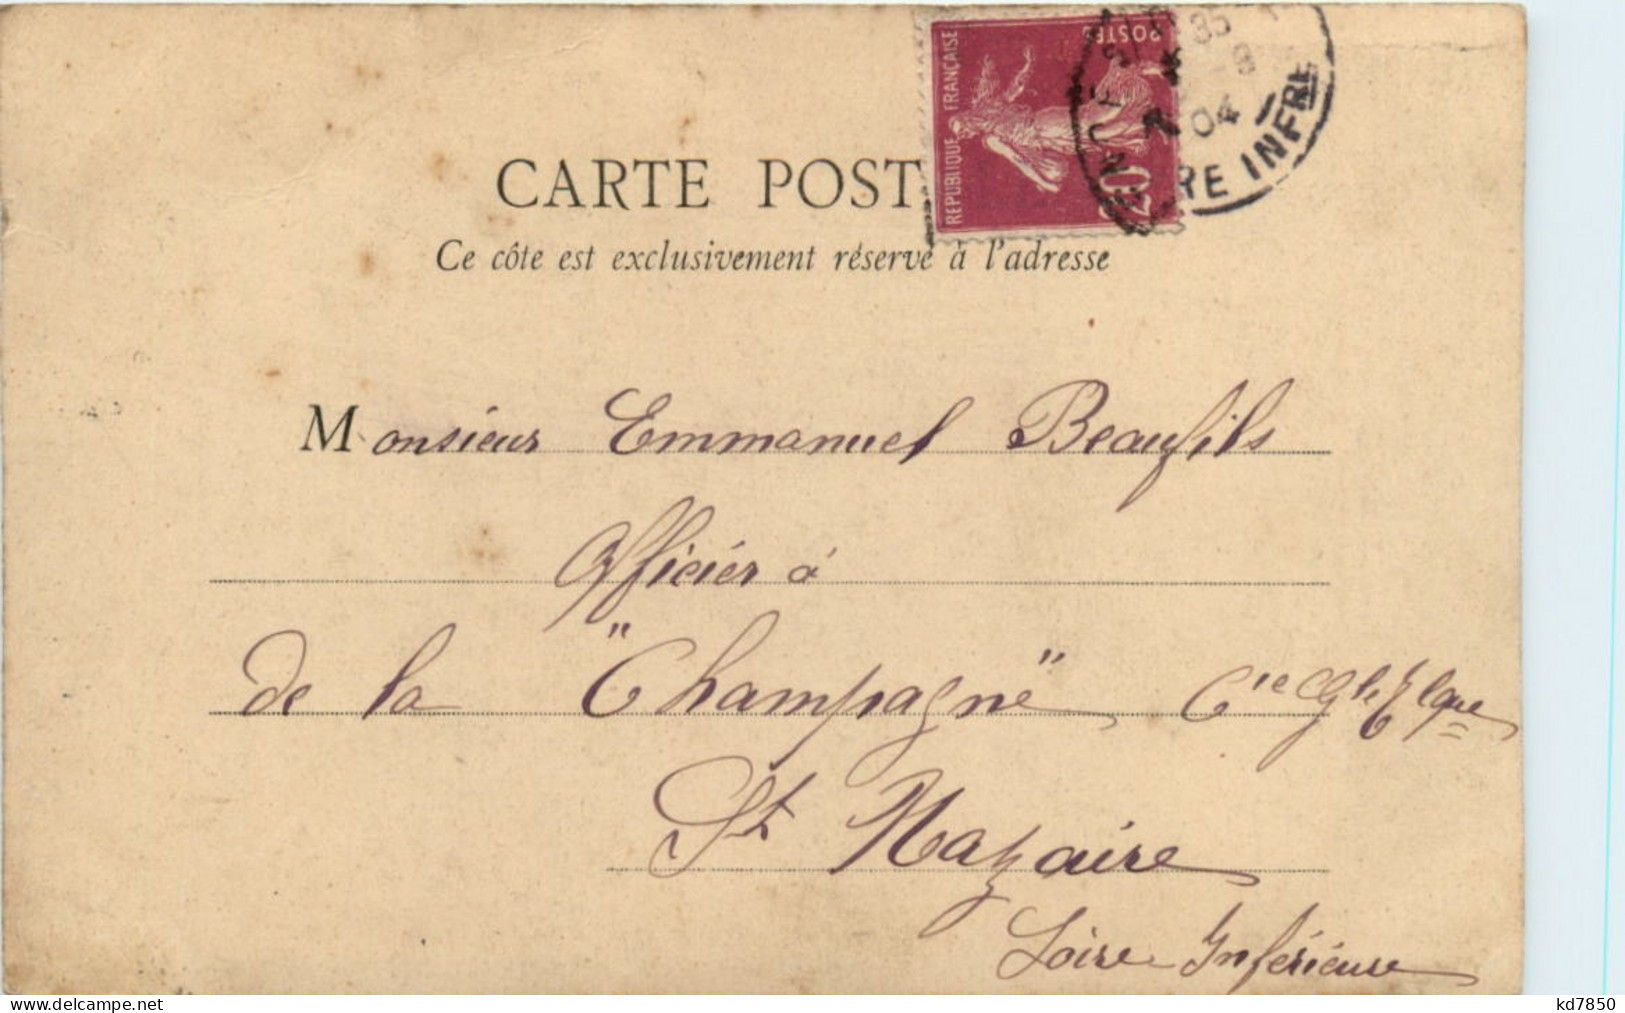 CARTE POST
Ce côte est exclusivement réservé à l'adresse
REPUBLIQUE FRANÇAISE
POSTES
20
04
RE INFRE
Monsieur Emmanuel Beaufils
Officier à
de la "Champagne" Cie Gle Tlque
St Nazaire
Loire Inférieure
www.delcampe.net
kd7850